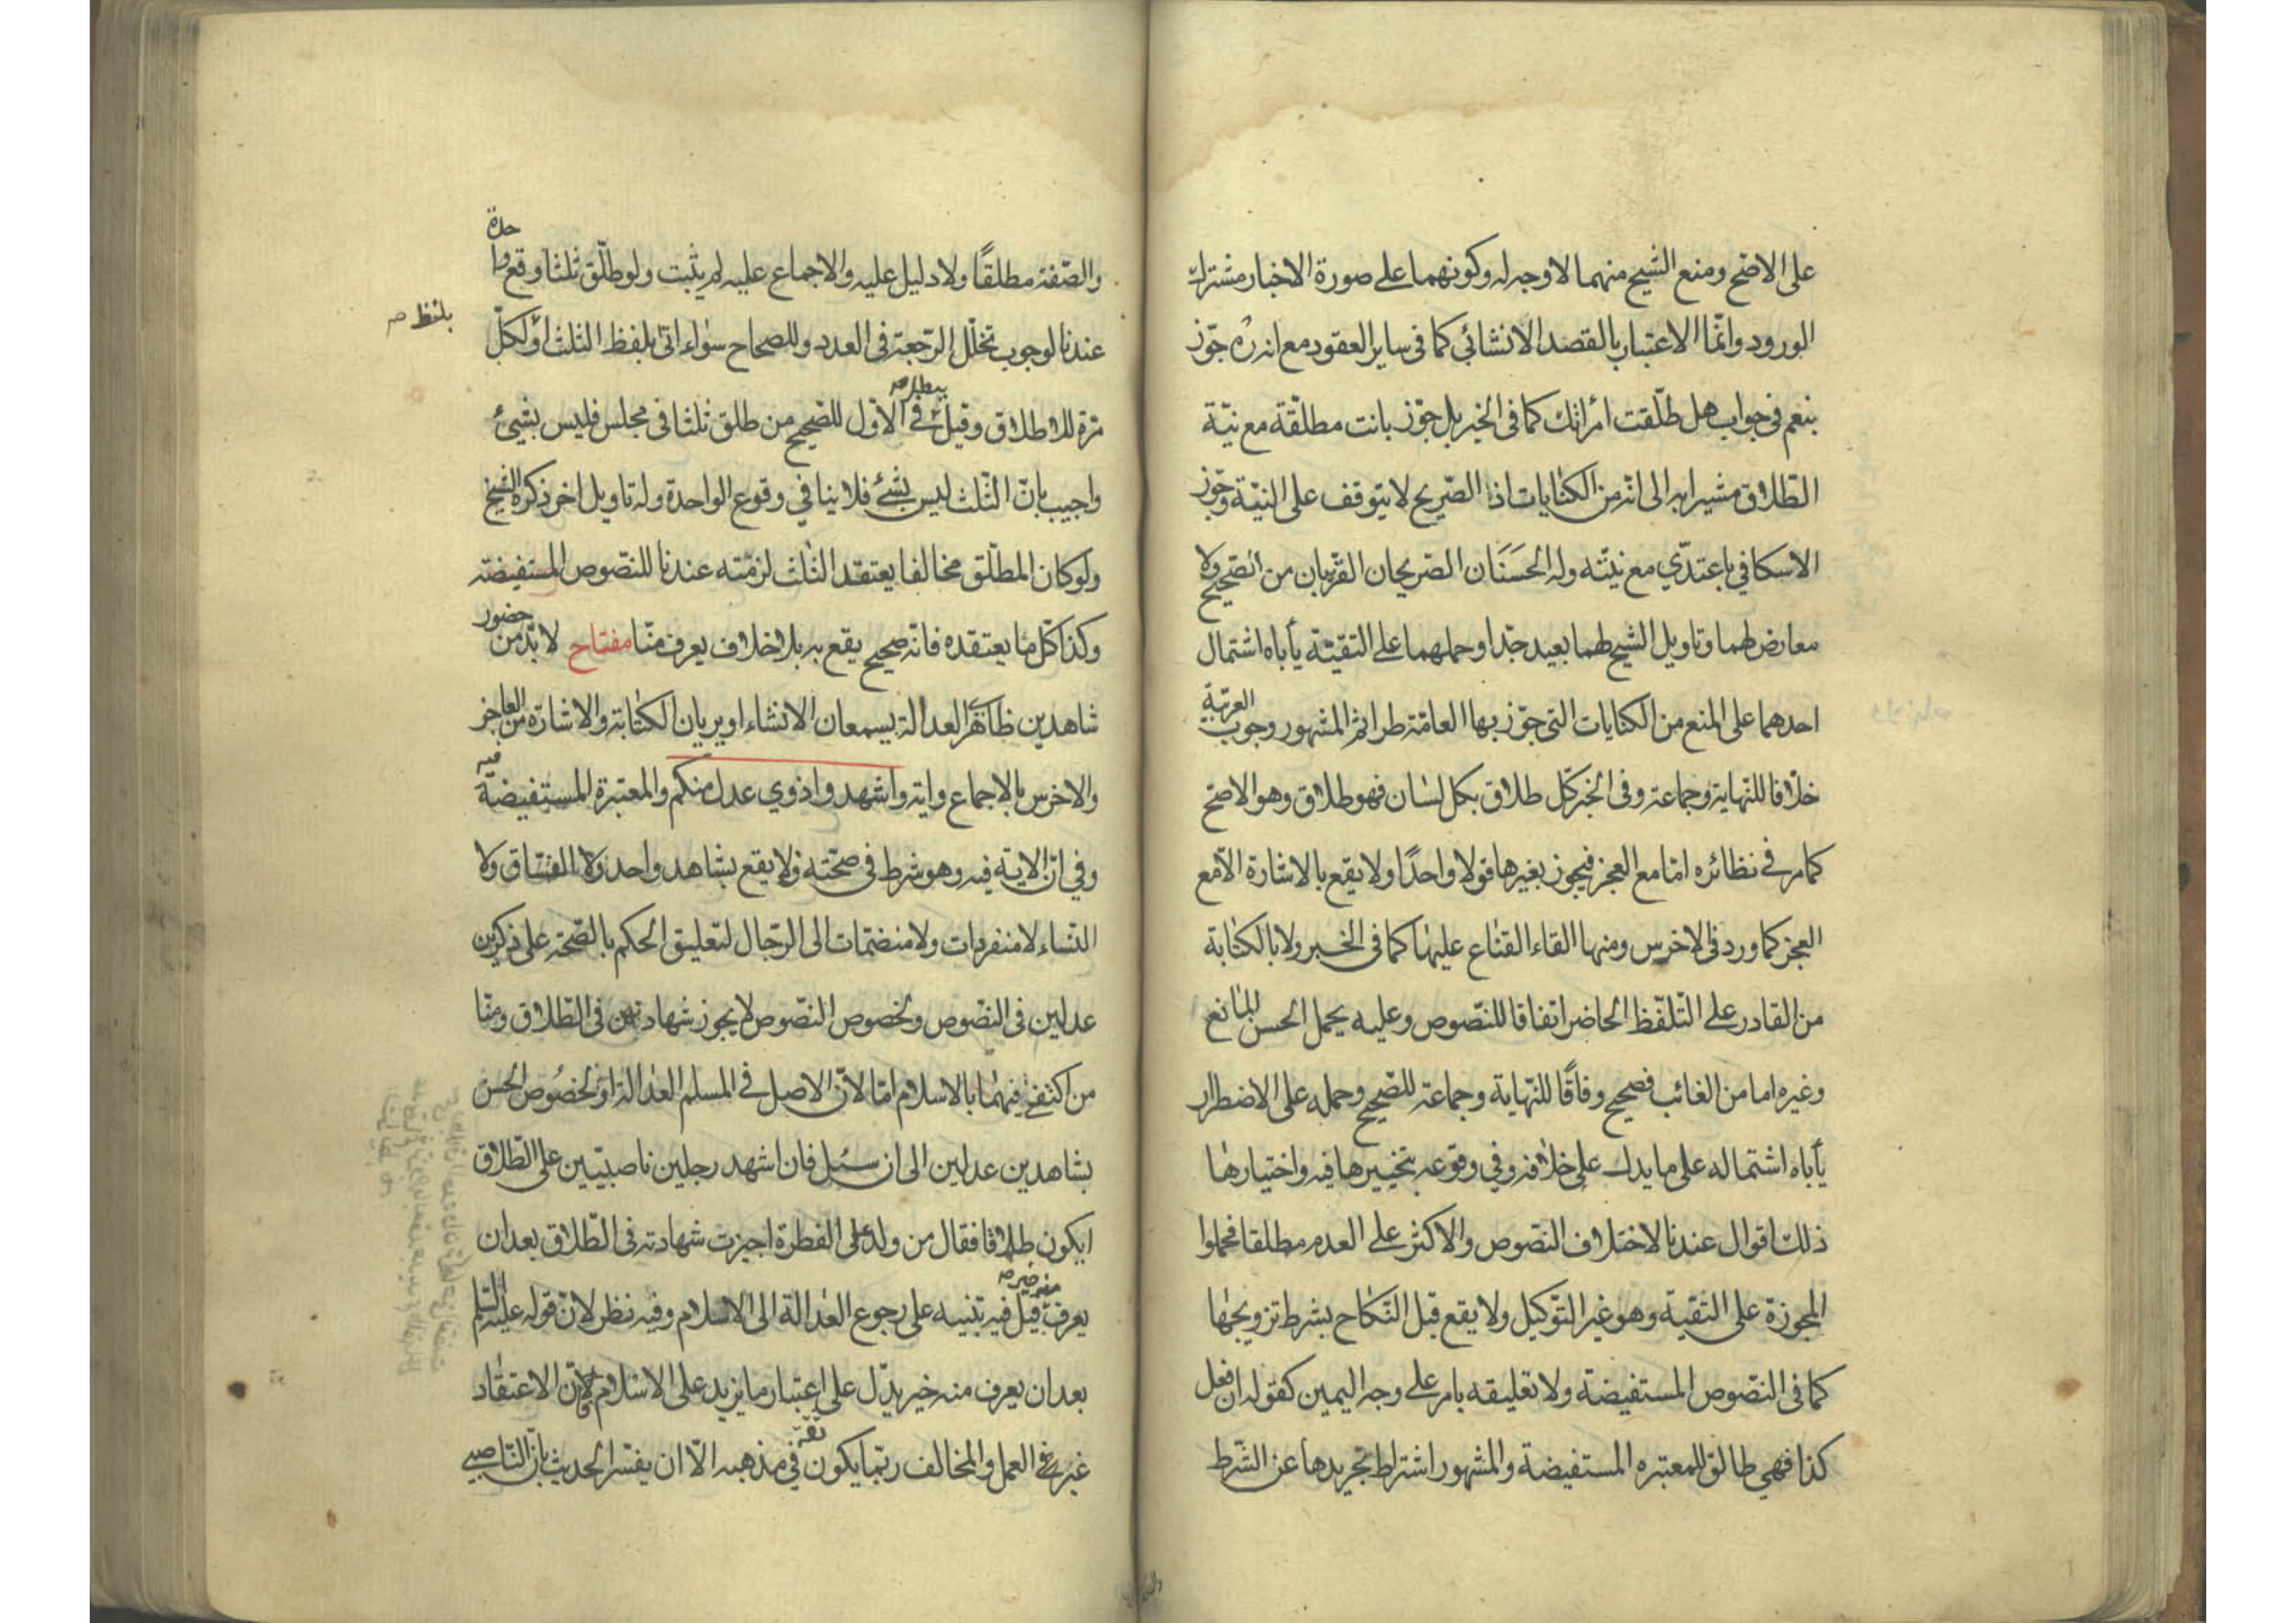 على الاصح ومنع الشيخ منهما لا وجه له وكونهما على صورة الاخبار مشترك
الورود وانّما الاعتبار بالقصد الانشائي كما في ساير العقود مع انه ره جوّز
بنعم في جواب هل طلّقت امراتك كما في الخبر بل جوّز بانت مطلقة مع نيّة
الطّلاق مشيرا به الى انّه من الكنايات اذ الصّريح لا يتوقف على النيّة وجوّز
الاسكافي باعتدّي مع نيّته وله الحَسَنَان الصّريحان القريبان من الصّحيح ولا
معارض لهما وتاويل الشيخ لهما بعيد جدّا وحملهما على التقيّة يأباه اشتمال
احدهما على المنع من الكنايات التي جوّز بها العامّة طرا ثم المشهور وجوب العربيّة
خلافا للنّهاية وجماعة وفى الخبر كل طلاق بكل لسان فهو طلاق وهو الاصحّ
كما مر في نظائره امّا مع العجز فيجوز بغيرها قولا واحدًا ولا يقع بالاشارة الّا مع
العجز كما ورد فى الاخرس ومنها القاء القناع عليها كما فى الخبر ولا بالكتابة
من القادر على التّلفّظ الحاضر اتفاقا للنّصوص وعليه يحمل الحسن المانع
وغيره اما من الغائب فصحيح وفاقًا للنّهاية وجماعة للصّحيح وحمله على الاضطرار
يأباه اشتماله على ما يدل على خلافه وفي وقوعه بتخييرها فيه واختيارها
ذلك اقوال عندنا لاختلاف النّصوص والاكثر على العدم مطلقا فحملوا
المجوزة على التقية وهو غير التّوكيل ولا يقع قبل النّكاح بشرط تزويجها
كما فى النّصوص المستفيضة ولا تعليقه بامر على وجه اليمين كقوله ان فعل
كذا فهي طالق للمعتبره المستفيضة والمشهور اشتراط تجريدها عن الشّرط
والصّفة مطلقًا ولا دليل عليه والاجماع عليه لم يثبت ولو طلّق ثلثا وقع واحدة
عندنا لوجوب تخلّل الرّجعة فى العدد وللصحاح سواء اتى بلفظ الثلث او لكلّ
بلفظ
مرّة للاطلاق وقيل يبطل في الاوّل للصّحيح من طلق ثلثا في مجلس فليس بشيئ
واجيب بانّ الثّلث ليس بشئ فلا ينافي وقوع الواحدة وله تاويل اخر ذكره الشيخ
ولو كان المطلّق مخالفا يعتقد الثلث لزمته عندنا للنّصوص المستفيضة
وكذا كلّ ما يعتقده فانّه صحيح يقع به بلا خلاف يعرف منّا مفتاح لا بدّ من حضور
شاهدين ظاهرى العدالة يسمعان الانشاء او يريان الكتابة والاشارة من العاجز
والاخرس بالاجماع واية واشهدوا ذوي عدل منكم والمعتبرة المستفيضة فيه
وفي انّ الاية فيه وهو شرط فى صحّته ولا يقع بشاهد واحد ولا الفسّاق ولا
النّساء لا منفردات ولا منضمّات الى الرّجال لتعليق الحكم بالصّحة على ذكرين
عدلين فى النّصوص ولخصوص النّصوص لا يجوز شهادتهن فى الطّلاق ومنّا
من اكتفى فيهما بالاسلام امّا لانّ الاصل في المسلم العدالة او لخصوص الحسن
بشاهدين عدلين الى ان سئل فان اشهد رجلين ناصبيّين على الطّلاق
ايكون طلاقا فقال من ولد على الفطرة اجيزت شهادته فى الطّلاق بعد ان
يعرف منه خير قيل فيه تنبيه على رجوع العدالة الى الاسلام وفيه نظر لانّ قوله عليه السّلم
بعد ان يعرف منه خير يدّل على اعتبار ما يزيد على الاسلام لانّ الاعتقاد
غير العمل والمخالف ربّما يكون ثقة في مذهبه الّا ان يفسّر الحديث بانّ النّاصبي